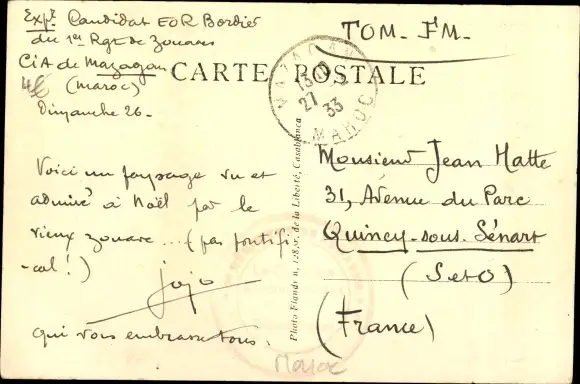 Expt Candidat EOR Bordier
du 1er Rgt de Zouaves
CIA de Mazagan
(Maroc)
Dimanche 26-
TOM- FM-
CARTE POSTALE
MAZAGAN
27
33
MAROC
Voici un paysage vu et
admiré à Noël par le
vieux zouave... (pas pontifi-
-cal!)
jojo
qui vous embrasse tous.
Photo Flandrin, 128, r. de la Liberté, Casablanca
Monsieur Jean Matte
31, Avenue du Parc
Quincy-sous-Sénart
(S et O)
(France)
Maroc